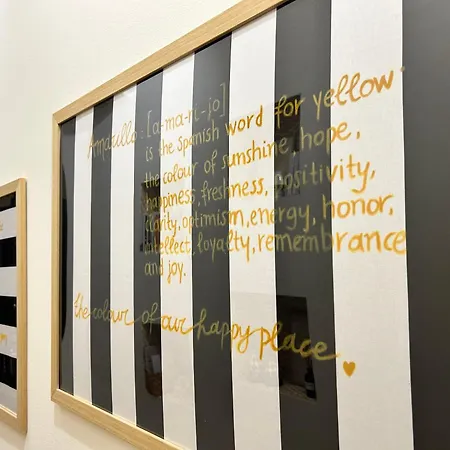 Amarillo: [a-ma-ri-jo]
is the Spanish word for yellow
the colour of sunshine, hope,
happiness, freshness, positivity,
clarity, optimism, energy, honor,
intellect, loyalty, remembrance
and joy.
the colour of our happy place.